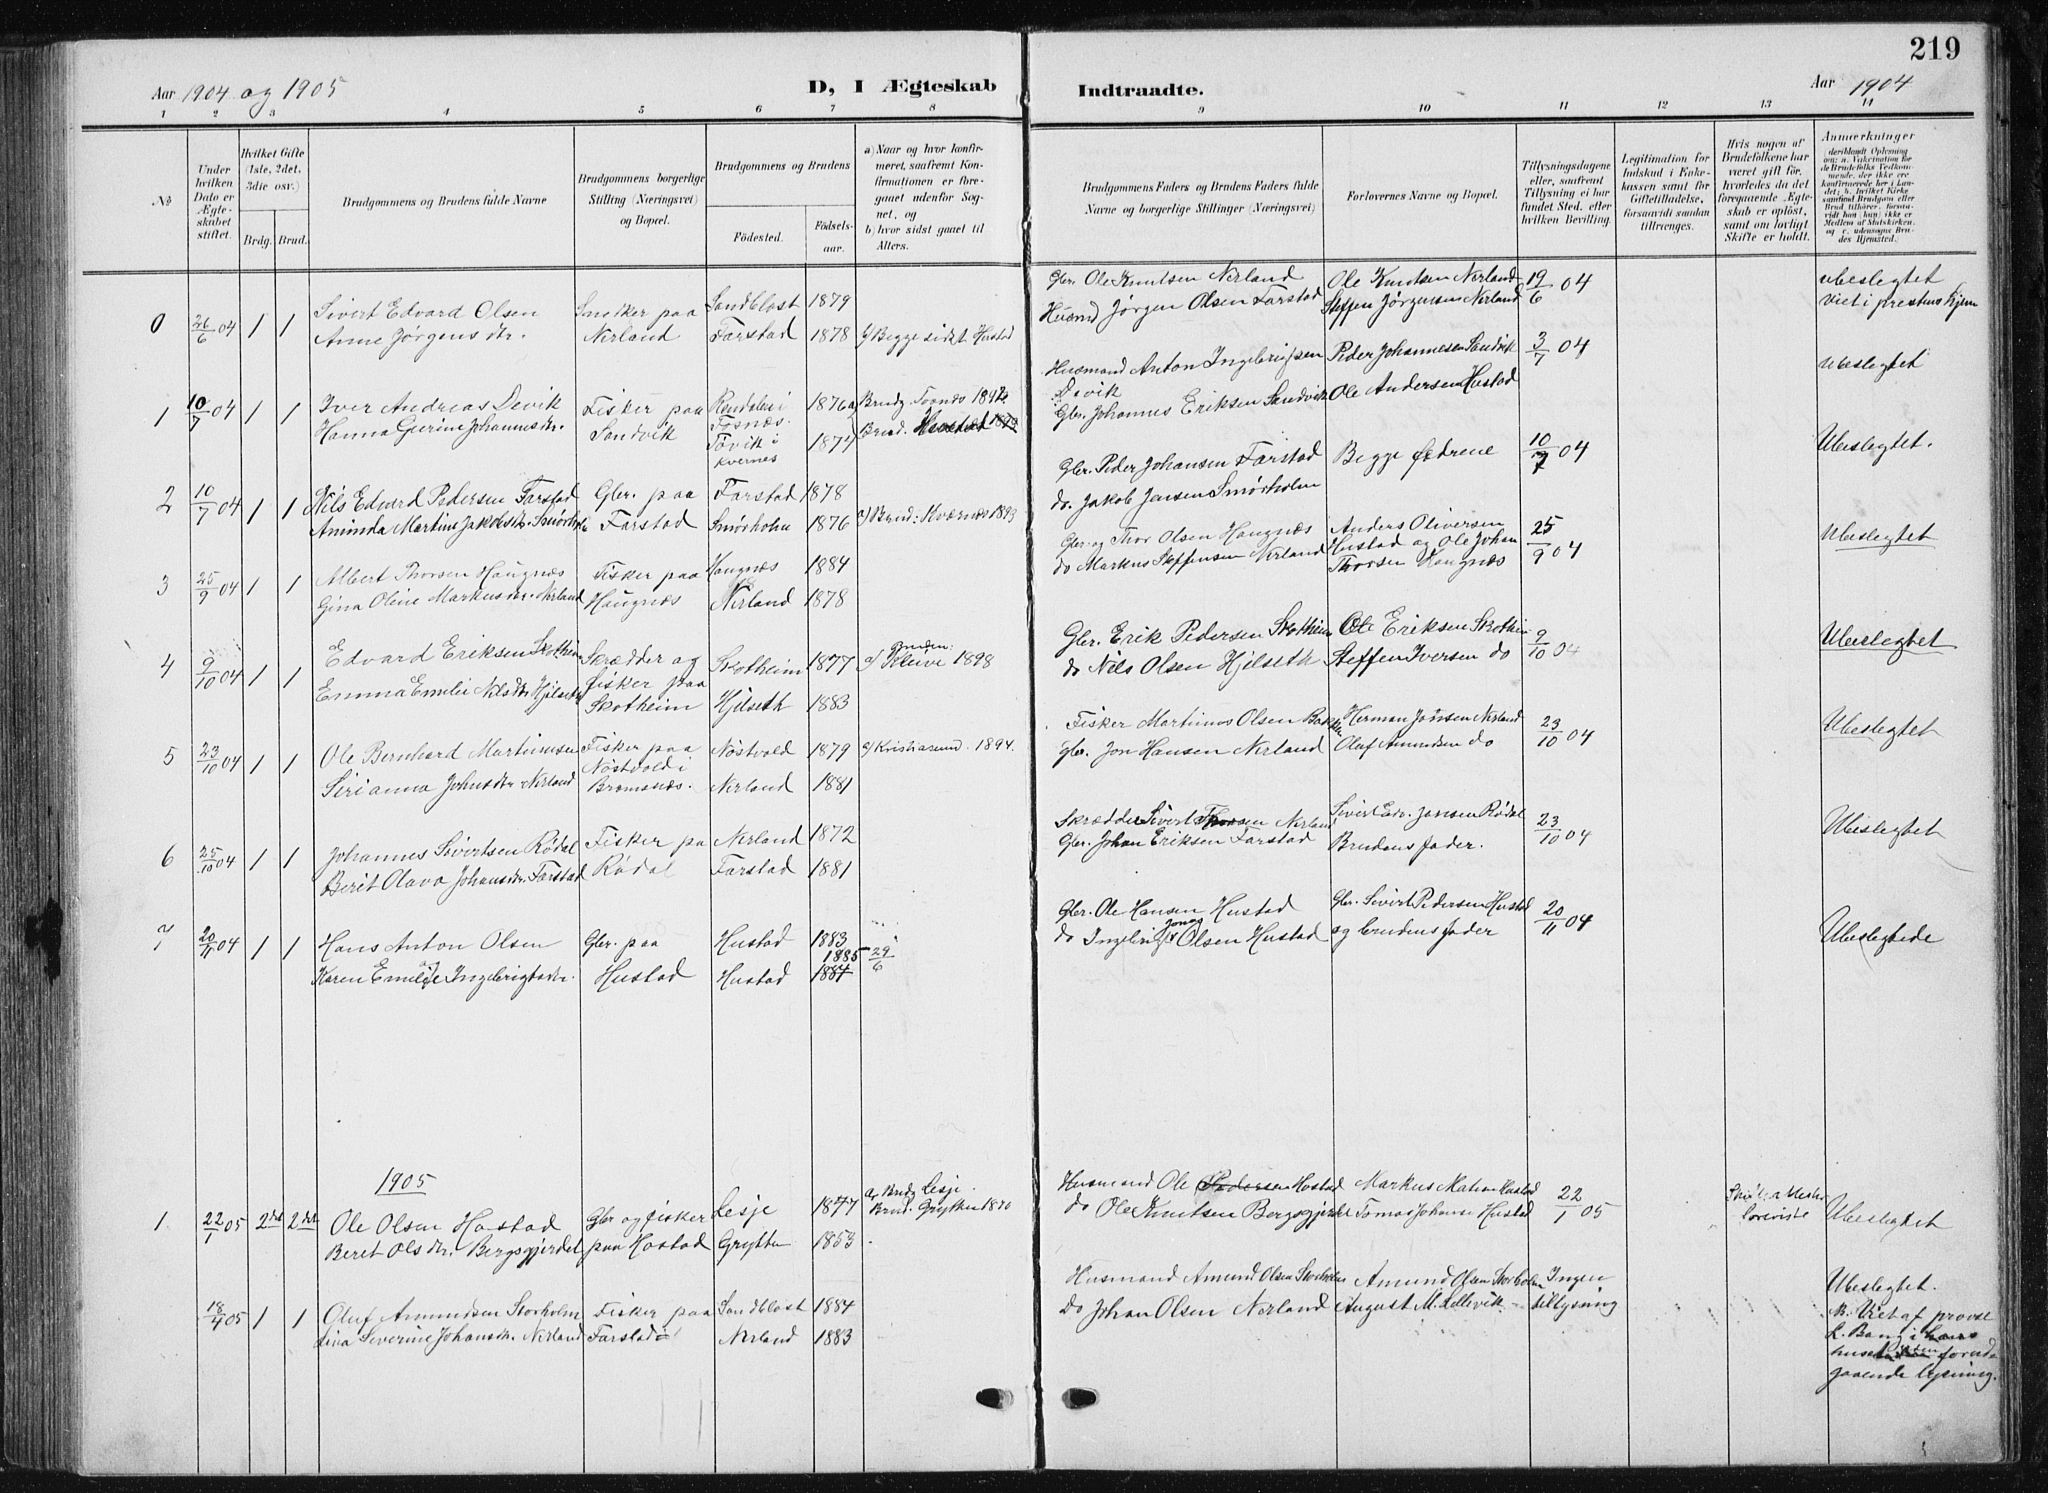 219
Aar 1904 og 1905
D, I Ægteskab
Indtraadte.
Aar 1904
1 2 3 4 5 6 7 8 9 10 11 12 13 14
No
Under hvilken Dato er Ægteskabet stiftet.
Hvilket Gifte (1ste, 2det, 3die osv.)
Brdg. Brud.
Brudgommens og Brudens fulde Navne
Brudgommens borgerlige Stilling (Næringsvei) og Bopæl.
Brudgommens og Brudens
Fødested.
Fødselsaar.
a) Naar og hvor konfirmeret, saafremt Konfirmationen er foregaaet udenfor Sognet, og
b) hvor sidst gaaet til Alters.
Brudgommens Faders og Brudens Faders fulde Navne og borgerlige Stillinger (Næringsvei)
Forlovernes Navne og Bopæl.
Tillysningsdagene eller, saafremt Tillysning ei har fundet Sted, efter hvilken Bevilling.
Legitimation for Indskud i Enkekassen samt for Giftetilladelse, forsaavidt saadan tiltrænges.
Hvis nogen af Brudefolkene har været gift før, hvorledes da det foregaaende Ægteskab er opløst, samt om lovligt Skifte er holdt.
Anmærkninger
0 26/6 04 1 1 Sivert Edvard Olsen Snekker paa Sandblost 1879
Anne Jørgensdtr. Nerland Farstad 1878 Begge sidst Hustad
Gbr. Ole Knutsen Nerland Ole Knutsen Nerland 19/6 04 ubeslegtet
Husmd Jørgen Olsen Farstad Steffen Jørgensen Nerland viet i prestens hjem
1 10/7 04 1 1 Iver Andreas Devik Fisker paa 1876
Hanna Gurine Johannesdtr. Sandvik Tøvik i Kvernes 1874 Brud. Hustad
Husmand Anton Ingebrigtsen Devik Peder Johannesen Sandvik 3/7 04 Ubeslegtet
Gbr. Johannes Eriksen Sandvik Ole Andersen Hustad
2 10/7 04 1 1 Nils Edvard Pedersen Farstad Gbr. paa Farstad 1878
Aminda Martine Jakobsdtr. Smørholm Farstad Smørholm 1876 Brud: Kværnes 1893
Gbr. Peder Johansen Farstad Begge fædrene 10/7 04 Ubeslegtet.
do. Jakob Jensen Smørholm
3 25/9 04 1 1 Albert Thorsen Haugnæs Fisker paa Haugnæs 1884
Gina Oline Markusdtr. Nerland Haugnæs Nerland 1878
Gbr. og Thor Olsen Haugnæs Anders Oliversen 25/9 04 Ubeslegtet
do Markus Steffensen Nerland Hustad og Ole Johan Thorsen Haugnæs
4 9/10 04 1 1 Edvard Eriksen Skotheim Skrædder og Skotheim 1877 Bruden Kleive 1898
Emma Emilie Nilsdtr Hjelseth fisker paa Skotheim Hjelseth 1883
Gbr. Erik Pedersen Skotheim Ole Eriksen Skotheim 9/10 04 Ubeslegtet
do Nils Olsen Hjelseth Steffen Iversen do
5 23/10 04 1 1 Ole Bernhard Martinusen Fisker paa Nøstvold 1879 Kristiasund. 1894.
Sirianna Johnsdtr. Nerland Nøstvold i Bremsnæs. Nerland 1881
Fisker Martinus Olsen Herman Jonsen Nerland 23/10 04 Ubeslegtet
gbr. Jon Hansen Nerland Oluf Amundsen do
6 25/10 04 1 1 Johannes Sivertsen Rødal Fisker pa Nerland 1872
Berit Olava Johansdtr. Farstad Rødal Farstad 1881
Skrædder Sivert Nerland 23/10 04 Ubeslegtet
Gbr. Johan Eriksen Farstad Brudens fader.
7 20/11 04 1 1 Hans Anton Olsen Gbr. paa Hustad 1883
Karen Emilie Ingebrigtsdtr. Hustad Hustad 1885 29/6 1884
Gbr. Ole Hansen Hustad Gbr. Sivert Pedersen Hustad 20/11 04 Ubeslegtede
do Ingebrigt Jonas Olsen Hustad og brudens fader
1905
1. 22/1 05 2det 2det Ole Olsen Hostad Gbr og fisker Lesje 1877 a, Brudg Lesje.
Beret Olsdtr. Bergsgjerdet paa Hostad Grytten 1853 Brud. Grytten 1870
Husmand Ole Pedersen Hostad Markus Hustad 22/1 05 Ubeslegtet
do Ole Knutsen Bergsgjerdet Tomas Johans Hustad
18/4 05 1 1 Oluf Amundsen Storholm Fisker paa Sandblost 1884
Lina Severine Johansdtr. Nerland Farstad Nerland 1883
Husmand Amund Olsen Storholm Amund Olsen Storholm Ingen
do Johan Olsen Nerland August M. Lillevik tillysning
Ubeslegtet.
Viet af provst
L. Bang i hans
huse uden foruda
gaaende lysning.